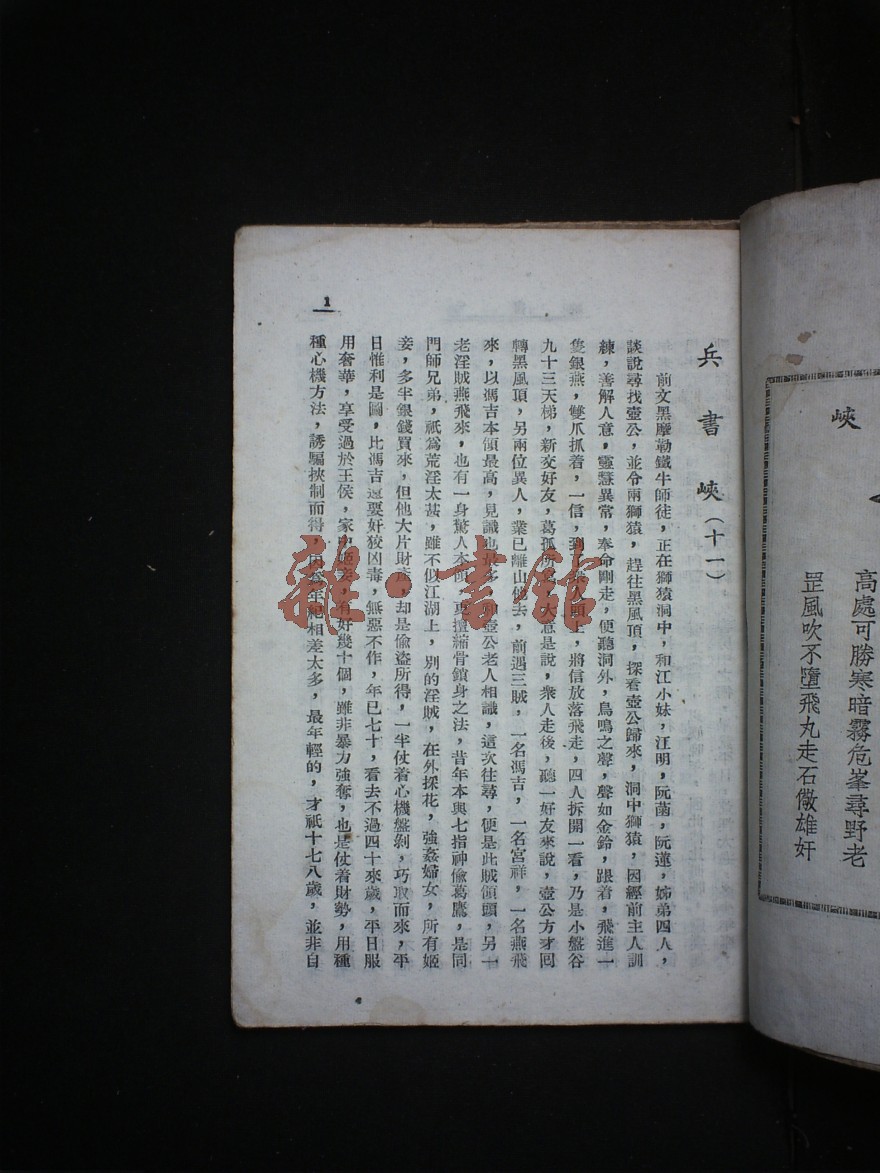 峽
高處可勝寒暗霧危峯尋野老
罡風吹不墮飛丸走石儆雄奸
兵書峽（十一）
前文黑摩勒鐵牛師徒，正在獅猿洞中，和江小妹，江明，阮菡，阮蓮，姊弟四人，
談說尋找壺公，並令兩獅猿，趕往黑風頂，探看壺公歸來，洞中獅猿，因經前主人訓
練，善解人意，靈慧異常，奉命剛走，便聽洞外，鳥鳴之聲，聲如金鈴，跟着，飛進一
隻銀燕，雙爪抓着，一信，到了衆人頭上，將信放落飛走，四人拆開一看，乃是小盤谷
九十三天梯，新交好友，葛孤所 大意是說，衆人走後，聽一好友來說，壺公方才囘
轉黑風頂，另兩位異人，業已離山他去，前遇三賊，一名馮吉，一名宮祥，一名燕飛
來，以馮吉本領最高，見識也最多，和壺公老人相識，這次往尋，便是此賊領頭，另一
老淫賊燕飛來，也有一身驚人本領，更擅縮骨鎖身之法，昔年本與七指神偷葛鷹，是同
門師兄弟，祇爲荒淫太甚，雖不似江湖上，別的淫賊，在外採花，強姦婦女，所有姬
妾，多半銀錢買來，但他大片財產，却是偷盜所得，一半仗着心機盤剝，巧取而來，平
日惟利是圖，比馮吉還要奸狡凶毒，無惡不作，年已七十，看去不過四十來歲，平日服
用奢華，享受過於王侯，家中姬妾，有好幾十個，雖非暴力強奪，也是仗着財勢，用種
種心機方法，誘騙挾制而得，因爲年紀相差太多，最年輕的，才祇十七八歲，並非自
1
雜·書館